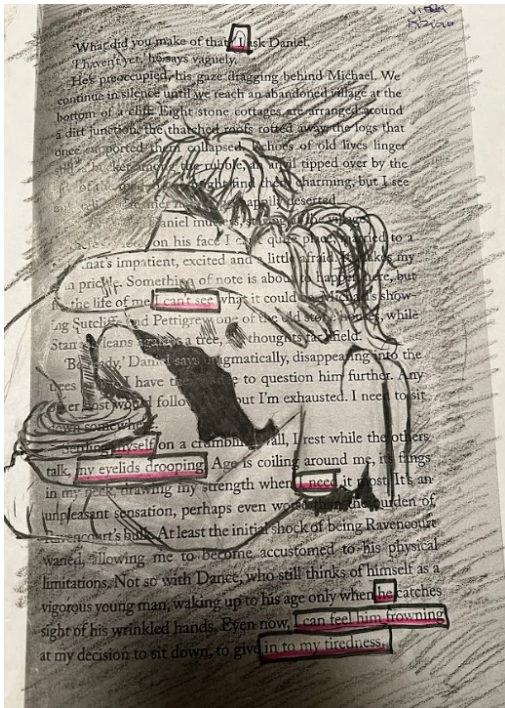 'What did you make of that?' I ask Daniel.
'I haven't yet,' he says vaguely.
He's preoccupied, his gaze dragging behind Michael. We
continue in silence until we reach an abandoned village at the
bottom of a cliff. Eight stone cottages are arranged around
a dirt junction, the thatched roofs rotted away, the logs that
once supported them collapsed. Echoes of old lives linger
the rubble, an anvil tipped over by the
find these charming, but I see
happily deserted.
Daniel
on his face I can't quite place,
that's impatient, excited and little afraid. It makes my
prickle. Something of note is about to happen here, but
for the life of me I can't see what it could be. Michael's show-
ing Sutcliffe and Pettigrew one of the old stone houses, while
Stan leans against a tree, thoughts far afield.
'Be ready,' Daniel says enigmatically, disappearing into the
trees I have the to question him further. Any
other host would follow but I'm exhausted. I need to sit
down somewhere.
Settling myself on a crumbling wall, I rest while the others
talk, my eyelids drooping. Age is coiling around me, its fangs
in my neck, drawing my strength when I need it most. It's an
unpleasant sensation, perhaps even worse than the burden of
Ravencourt's bulk. At least the initial shock of being Ravencourt
waned, allowing me to become accustomed to his physical
limitations. Not so with Dance, who still thinks of himself as a
vigorous young man, waking up to his age only when he catches
sight of his wrinkled hands. Even now, I can feel him frowning
at my decision to sit down, to give in to my tiredness.